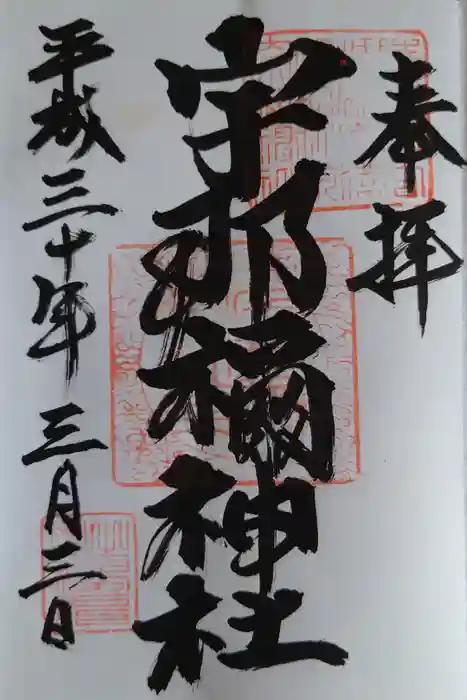 奉拝
宇那禰神社
平成三十年 三月三日